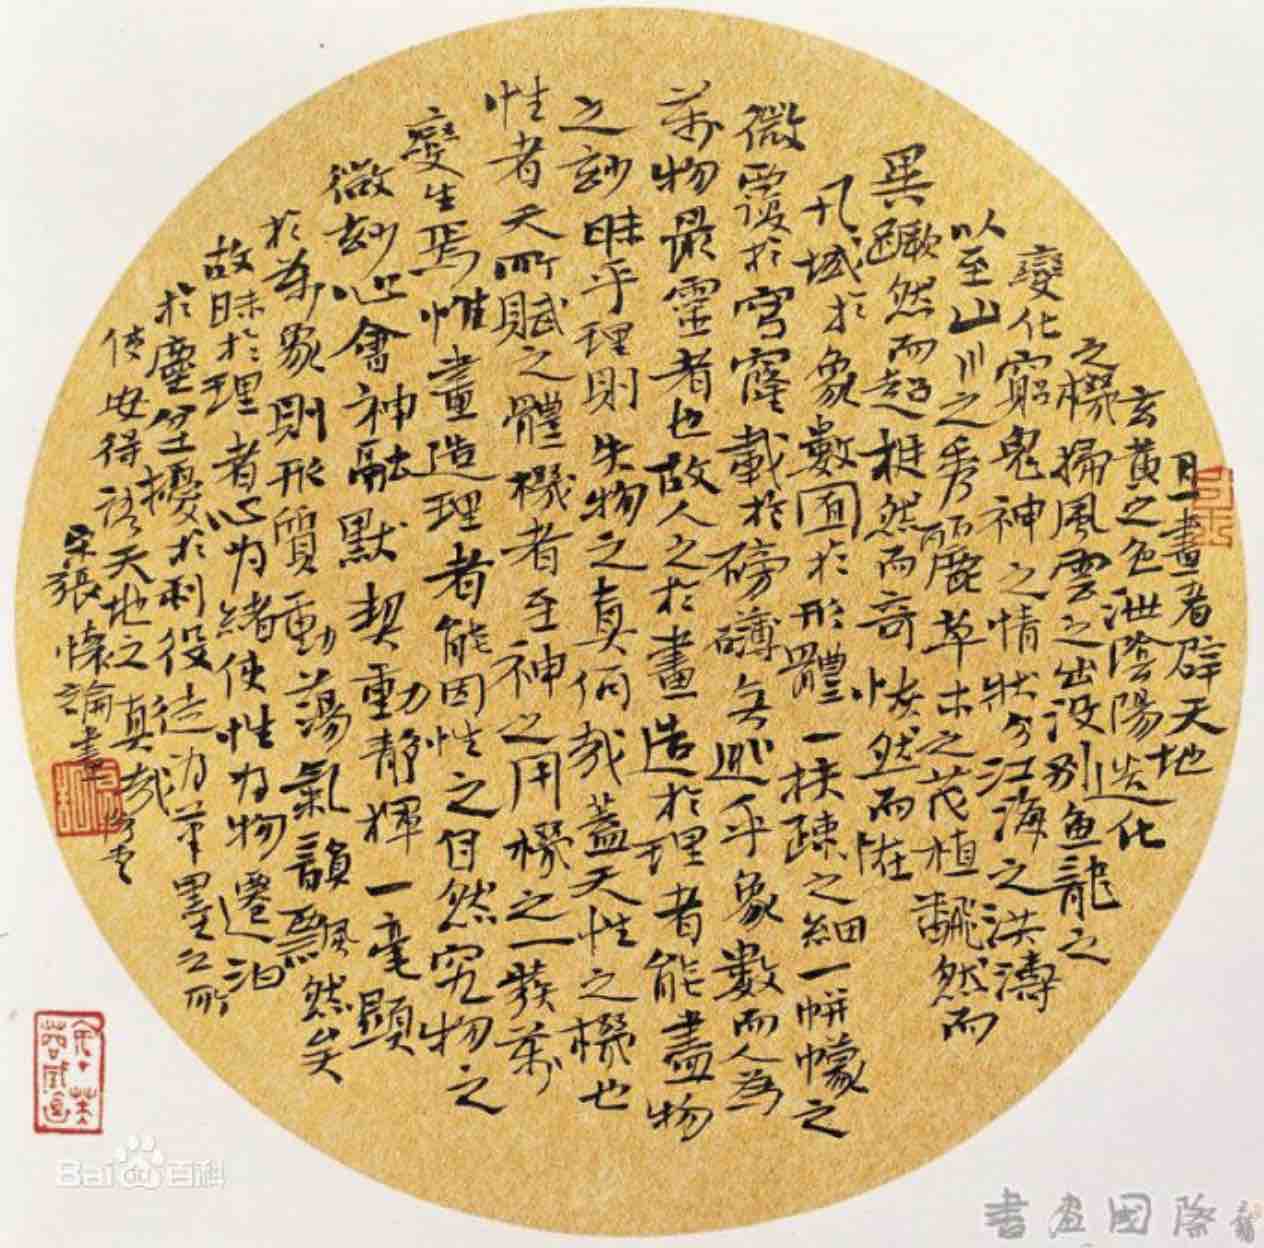 且畫者辟天地
玄黄之色泄陰陽造化
之機掃風雲之出没别魚龍之
變化窮鬼神之情狀分江海之洪濤
以至山川之秀麗草木之茂植翻然而
異蹶然而超挺然而奇然而怪
凡域於象數囿於形體一扶疎之細一帡幪之
微覆於穹窿載於磅礴無逃乎象數而人為
萬物最靈者也故人之於畫造於理者能盡物
之妙昧乎理則失物之真何哉蓋天性之機也
性者天所賦之體機者至神之用機之一發萬
變生焉惟畫造理者能因性之自然究物之
微妙心會神融默契動静揮一毫顯
於萬象則形質動蕩氣韻飄然矣
故昧於理者心為緒使性為物遷汩
於塵坌擾於利役徒為筆墨之所
使安得語天地之真哉
宋張懷論畫
Baidu百科
書畫國際